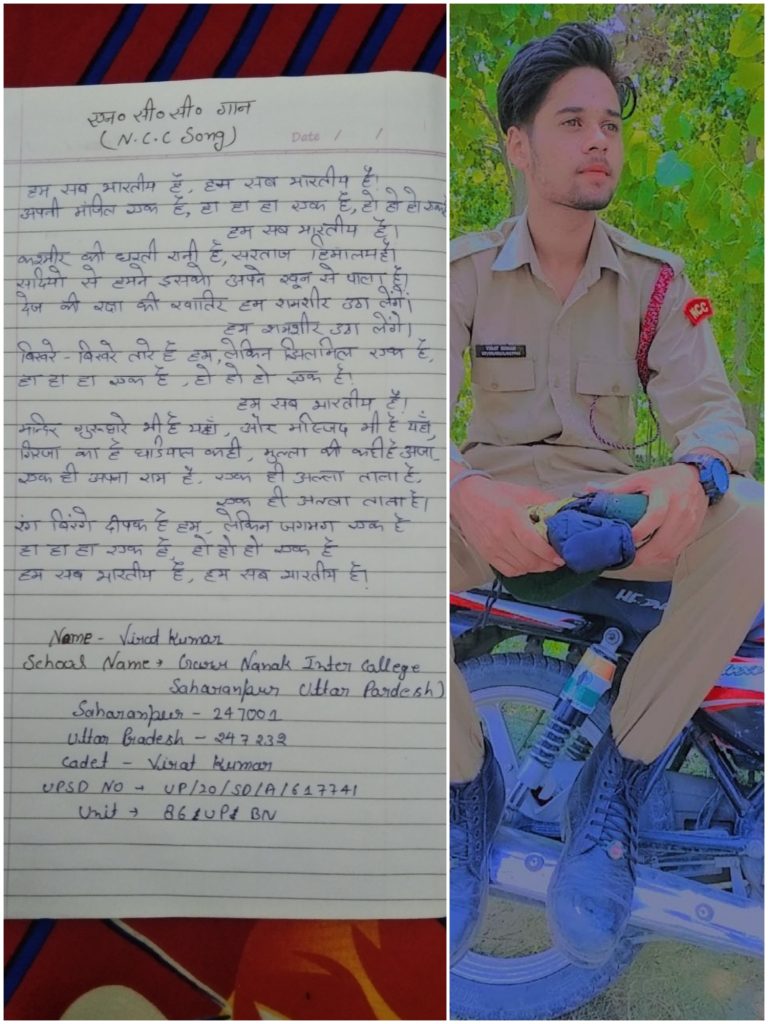 एन० सी० सी० गान
(N.C.C Song)
Date / /
हम सब भारतीय है, हम सब भारतीय है।
अपनी मंजिल एक है, हा हा हा एक है, हो हो हो एक है
हम सब भारतीय है।
कश्मीर की धरती रानी है, सरताज हिमालय है।
सदियो से हमने इसको अपने खून से पाला है।
देश की रक्षा की खातिर हम शमशीर उठा लेंगें।
हम शमशीर उठा लेंगे।
बिखरे - बिखरे तारे है हम, लेकिन झिलमिल एक है,
हा हा हा एक है, हो हो हो एक है।
हम सब भारतीय है।
मन्दिर गुरुद्वारे भी है यहाँ, और मस्जिद भी है यहाँ,
गिरजा का है घड़ियाल कही, मुल्ला की कही है अजां
एक ही अपना राम है, एक ही अल्ला ताला है,
एक ही अल्ला ताला है।
रंग बिरंगे दीपक है हम, लेकिन जगमग एक है
हा हा हा एक है, हो हो हो एक है
हम सब भारतीय है, हम सब भारतीय है।
Name - Virat Kumar
School Name → Guru Nanak Inter College
Saharanpur Uttar Pardesh)
Saharanpur - 247001
Uttar Pradesh - 247232
Cadet - Virat Kumar
UPSD NO → UP/20/SD/A/617741
Unit → 86 UP BN
NCC
VIRAT KUMAR